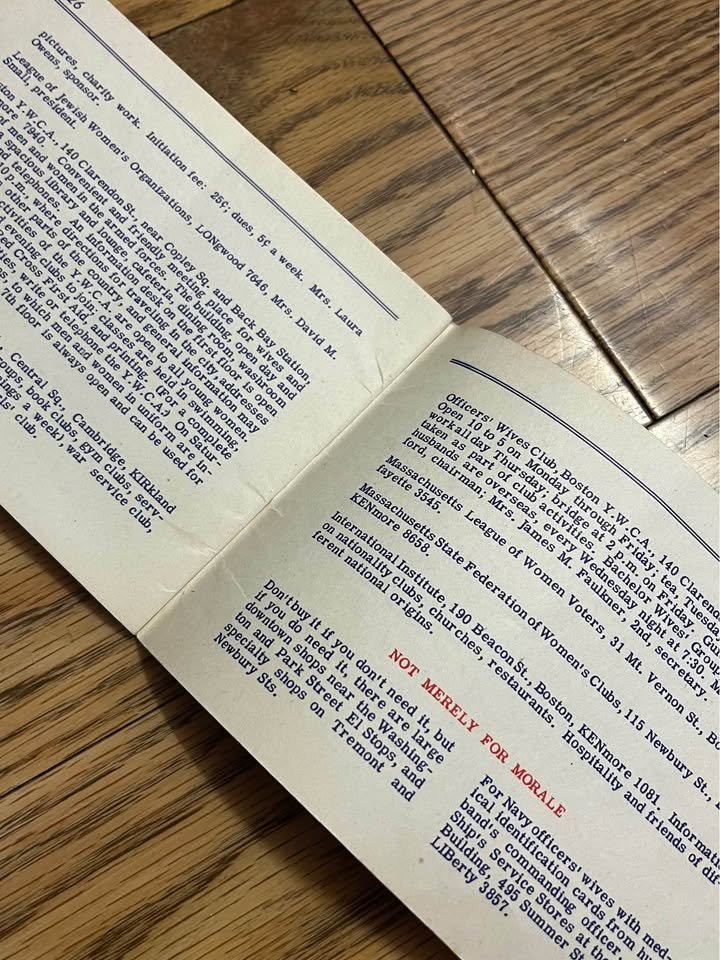 26
pictures, charity work. Initiation fee: 25¢; dues, 5¢ a week. Mrs. Laura
Owens, sponsor.
League of Jewish Women's Organizations, LONgwood 7646, Mrs. David M.
Small, president.
Y.W.C.A., 140 Clarendon St., near Copley Sq. and Back Bay Station,
7940. Convenient and friendly meeting place for wives and
of men and women in the armed forces. The building, open day and
a spacious library and lounge, cafeteria, dining room, washroom
and telephones. An information desk on the first floor is open
10 p.m., where directions for traveling in the city, addresses
other parts of the country, and general information may
activities of the Y.W.C.A. are open to all young women.
evening clubs to join, classes are held in swimming,
Red Cross First Aid, and printing. (For a complete
write or telephone the Y.W.C.A.) On Satur-
to which men and women in uniform are in-
7th floor is always open and can be used for
Central Sq., Cambridge, KIRkland
book clubs, gym clubs, serv-
a week), war service club,
club.
Officers' Wives Club, Boston Y.W.C.A., 140
Open 10 to 5 on Monday through Friday, tea,
work all day Thursday, bridge at 2 p.m. on Friday.
taken as part of club activities. Bachelor Wives'
husbands are overseas, every Wednesday night at 7:30.
ford, chairman; Mrs. James M. Faulkner, 2nd, secretary.
Massachusetts League of Women Voters, 31 Mt. Vernon St.,
fayette 3545.
Massachusetts State Federation of Women's Clubs, 115 Newbury St.,
KENmore 8658.
International Institute, 190 Beacon St., Boston, KENmore 1081.
on nationality clubs, churches, restaurants. Hospitality and friends of dif-
ferent national origins.
NOT MERELY FOR MORALE
Don't buy it if you don't need it, but
if you do need it, there are large
downtown shops near the Washing-
ton and Park Street El Stops, and
specialty shops on Tremont and
Newbury Sts.
For Navy officers' wives with med-
ical identification cards from hus-
band's commanding officer.
Ship's Service Stores at the
Building, 495 Summer St
LIBerty 3857.